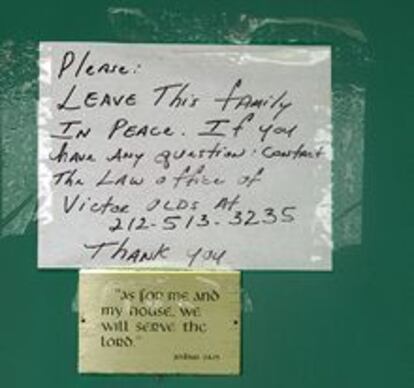 Please:
LEAVE This family
IN PEACE. If you
have ANY question: CONTACT
The LAW office of
Victor OLDS At
212-513-3235
THANK you
"as for me and
my house, we
will serve the
lord."